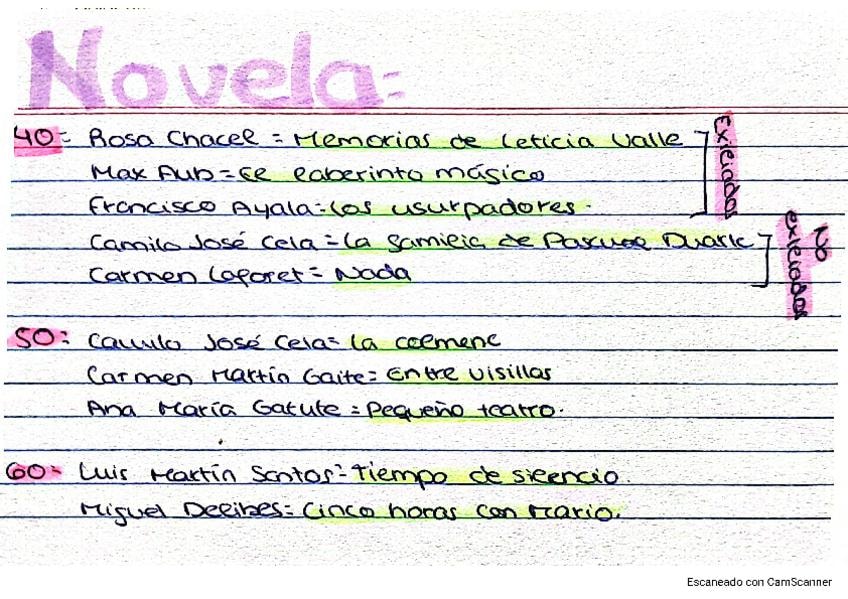 Novela=
40= Rosa Chacel = Memorias de Leticia Valle
Max Aub = El laberinto mágico
Francisco Ayala = Los usurpadores.
Exiliados
Camilo José Cela = La familia de Pascual Duarte
Carmen Laforet = Nada
No exiliados
50= Camilo José Cela = La colmena
Carmen Martín Gaite = Entre visillos
Ana María Gatute = Pequeño teatro.
60= Luis Martín Santos = Tiempo de silencio
Miguel Delibes = Cinco horas con Mario.
Escaneado con CamScanner